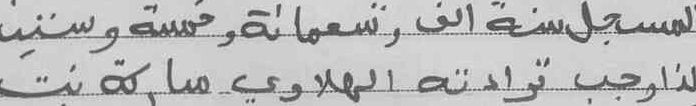 المسجل سنة الف وتسعمائة وخمسة وستين
لذا وجب تراد ته الهلاوي مباركة بنت